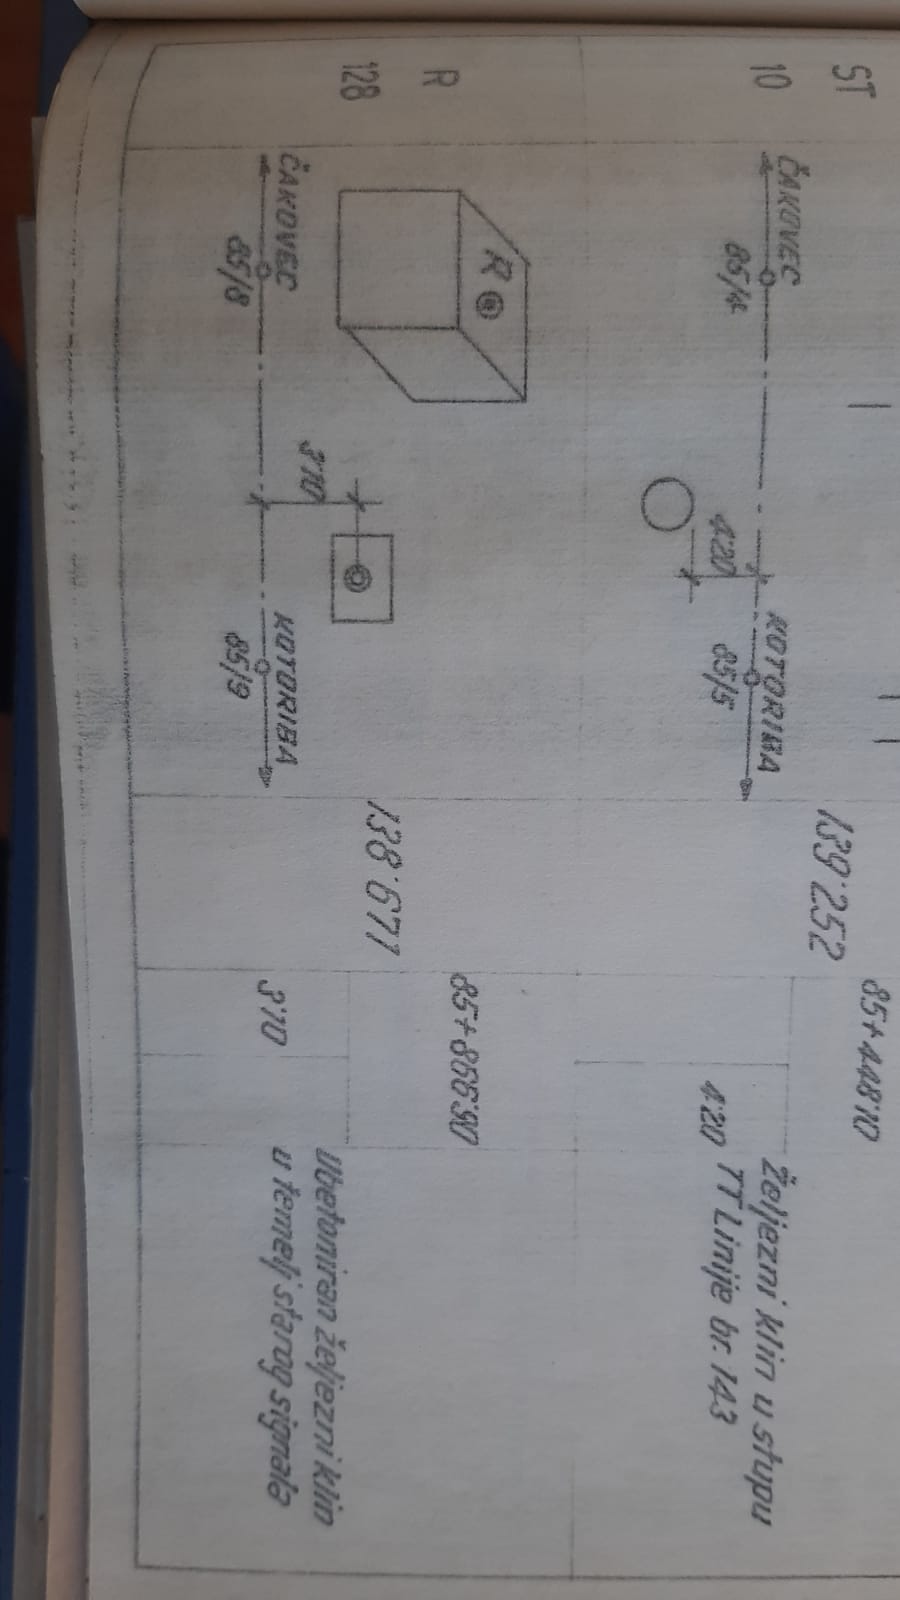 ST
10
ČAKOVEC
85/4
4˙20
KOTORIBA
85/5
139˙252
85+448˙10
4˙20
Željezni klin u stupu
TT Linije br. 143
R
128
R
3˙10
ČAKOVEC
85/8
KOTORIBA
85/9
138˙671
85+866˙90
3˙10
Ubetoniran željezni klin
u temelj starog signala